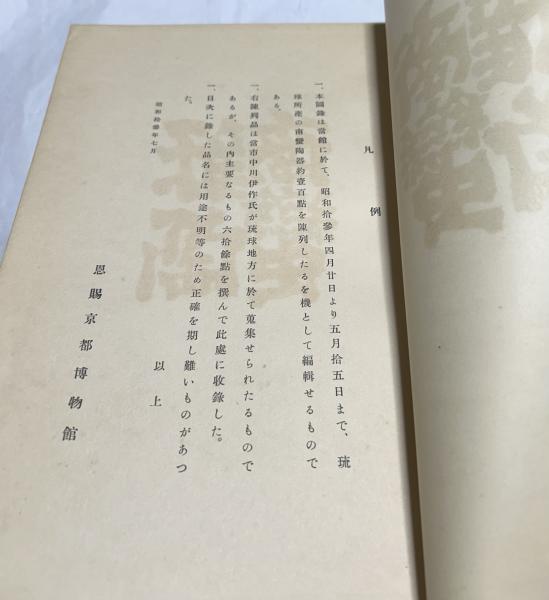 凡例
一、本圖錄は當館に於て、昭和拾參年四月廿日より五月拾五日まで、琉
球所產の南蠻陶器約壹百點を陳列したるを機として編輯せるもので
ある。
一、右陳列品は當市中川伊作氏が琉球地方に於て蒐集せられたるもので
あるが、その內主要なるもの六拾餘點を撰んで此處に收錄した。
一、目次に錄した品名には用途不明等のため正確を期し難いものがあつ
た。
以上
昭和拾參年七月
恩賜京都博物館